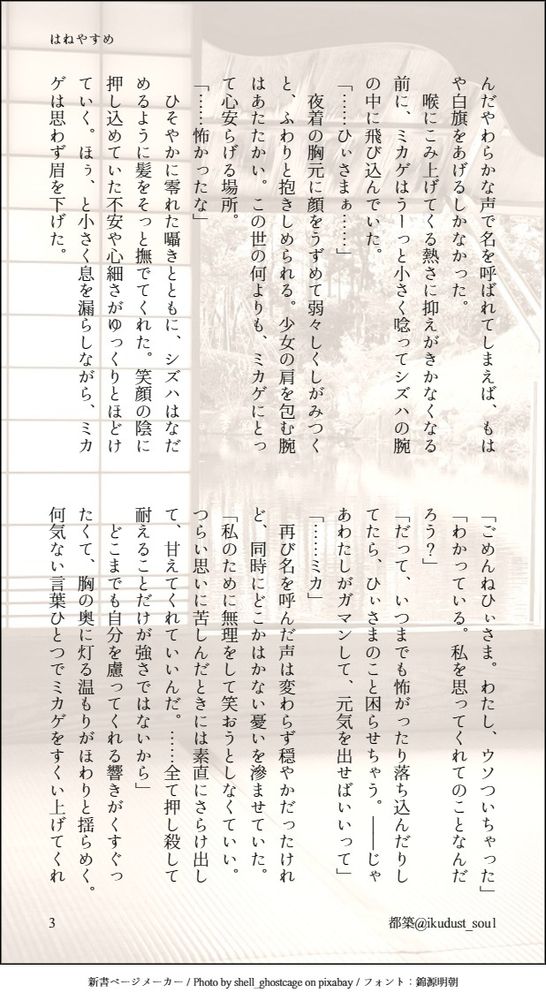 はねやすめ
んだやわらかな声で名を呼ばれてしまえば、もは
や白旗をあげるしかなかった。
　喉にこみ上げてくる熱さに抑えがきかなくなる
前に、ミカゲはうーっと小さく唸ってシズハの腕
の中に飛び込んでいた。
「……ひぃさまぁ……」
　夜着の胸元に顔をうずめて弱々しくしがみつく
と、ふわりと抱きしめられる。少女の肩を包む腕
はあたたかい。この世の何よりも、ミカゲにとっ
て心安らげる場所。
「……怖かったな」
　ひそやかに零れた囁きとともに、シズハはなだ
めるように髪をそっと撫でてくれた。笑顔の陰に
押し込めていた不安や心細さがゆっくりとほどけ
ていく。ほぅ、と小さく息を漏らしながら、ミカ
ゲは思わず眉を下げた。
「ごめんねひぃさま。わたし、ウソついちゃった」
「わかっている。私を思ってくれてのことなんだ
ろう？」
「だって、いつまでも怖がったり落ち込んだりし
てたら、ひぃさまのこと困らせちゃう。――じゃ
あわたしがガマンして、元気を出せばいいって」
「……ミカ」
　再び名を呼んだ声は変わらず穏やかだったけれ
ど、同時にどこかはかない憂いを滲ませていた。
「私のために無理をして笑おうとしなくていい。
つらい思いに苦しんだときには素直にさらけ出し
て、甘えてくれていいんだ。……全て押し殺して
耐えることだけが強さではないから」
　どこまでも自分を慮ってくれる響きがくすぐっ
たくて、胸の奥に灯る温もりがほわりと揺らめく。
何気ない言葉ひとつでミカゲをすくい上げてくれ
3
都築@ikudust_soul
新書ページメーカー / Photo by shell_ghostcage on pixabay / フォント：錦源明朝